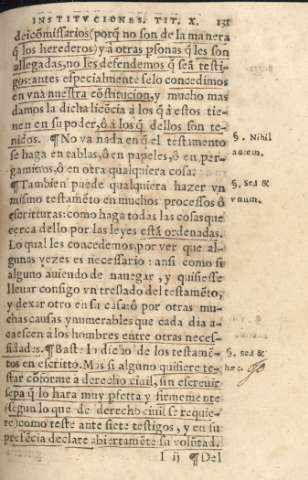 INSTITVCIONES. TIT. X. 131
deicõmissarios (porq̃ no son de la manera
q̃ los herederos) y à otras p̃sonas q̃ les son
allegadas, no les defendemos q̃ seã testi-
gos: antes especialmente se lo concedimos
en vna nuestra cõstitucion, y mucho mas
damos la dicha licẽcia à los q̃ à estos tie-
nen en su poder, ô à los q̃ dellos son te-
nidos. ¶ No va nada en q̃ el testamento
§. Nihil
se haga en tablas, ô en papeles, ô en per-
autem.
gaminos, ô en otra qualquiera cosa.
¶ Tambien puede qualquiera hazer vn
§. sed &
mismo testamẽto en muchos processos ô
vnum.
escritturas: como haga todas las cosas que
cerca dello por las leyes està ordenadas.
Lo qual les concedemos, por ver que al-
gunas vezes es necessario: ansi como si
alguno auiendo de nauegar, y quisiesse
lleuar consigo vn treslado del testamẽto,
y dexar otro en su casa: ô por otras mu-
chas causas ynumerables que cada dia a-
caescen à los hombres entre otras neces-
sidades. ¶ Baste lo dicho de los testamẽ-
§. sed &
tos en escritto. Mas si alguno quisiere te-
hæc.
star cõforme a derecho ciuil, sin escreuir
sepa q̃ lo hara muy p̃fetta y firmemente
(segun lo que de derecho ciuil se requie-
re) como teste ante siete testigos, y en su
presẽcia declare abiertamẽte su volũtad.
I ij ¶ Del